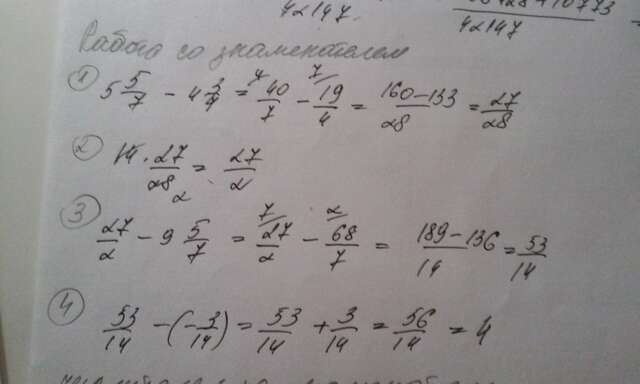 42147
10773
42147
Работа со знаменателем
① 5 5/7 − 4 3/4 = 40/7 − 19/4 = (160 − 133)/28 = 27/28
② 14 · 27/28 = 27/2
③ 27/2 − 9 5/7 = 27/2 − 68/7 = (189 − 136)/14 = 53/14
④ 53/14 − (− 3/14) = 53/14 + 3/14 = 56/14 = 4